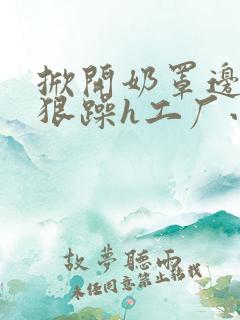 掀開奶罩邊
狠躁h工厂、
故夢聽雨
未任同意禁止转载